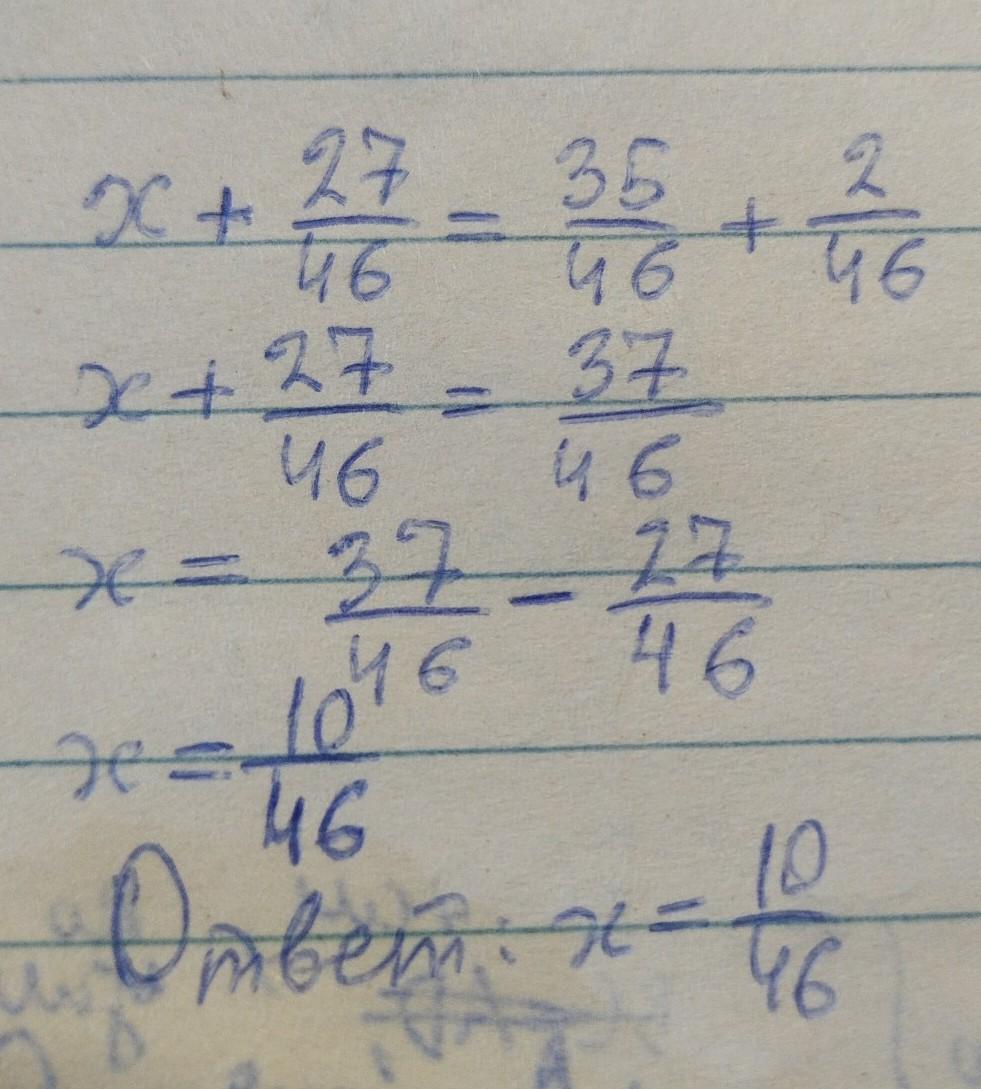 x + 27/46 = 35/46 + 2/46
x + 27/46 = 37/46
x = 37/46 − 27/46
x = 10/46
Ответ: x = 10/46